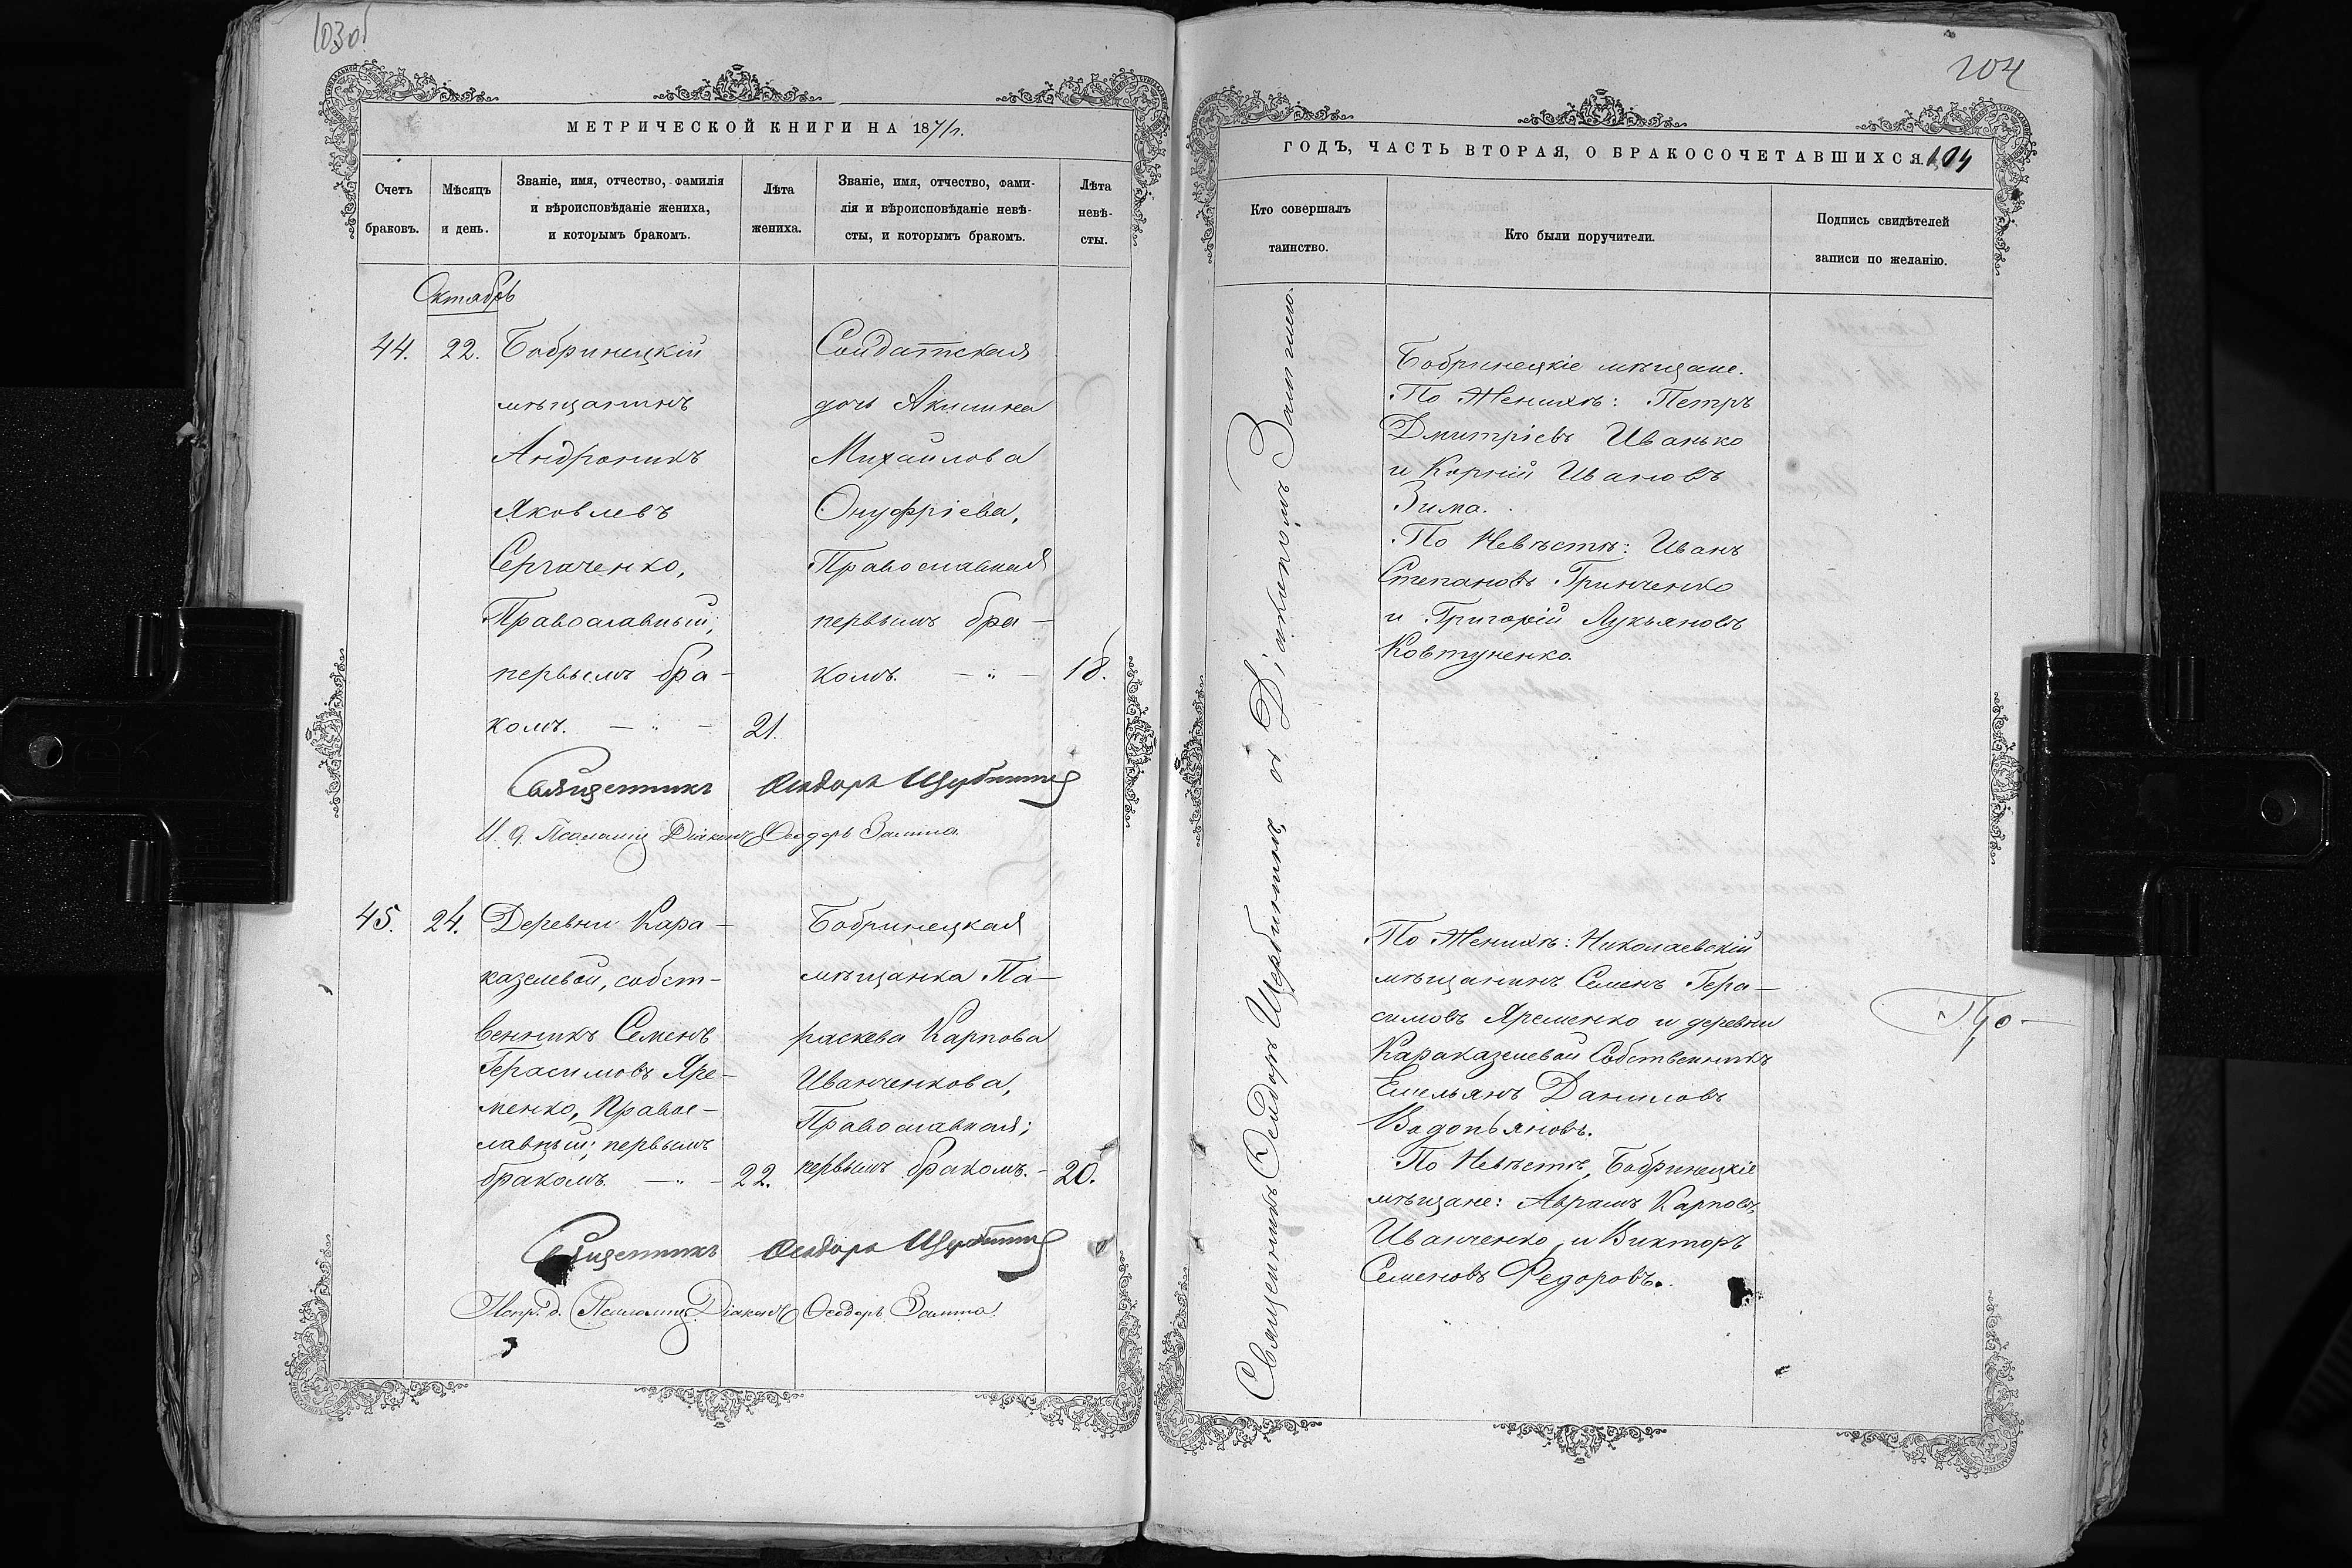 103об
МЕТРИЧЕСКОЙ КНИГИ НА 1871 г.
Счетъ
браковъ.
Мѣсяцъ
и день.
Званіе, имя, отчество, фамилія
и вѣроисповѣданіе жениха,
и которымъ бракомъ.
Лѣта
жениха.
Званіе, имя, отчество, фами-
лія и вѣроисповѣданіе невѣ-
сты, и которымъ бракомъ.
Лѣта
невѣ-
сты.
Октябрь
44.
22.
Бобринецкій
мѣщанинъ
Андроникъ
Яковлевъ
Сергаченко,
Православный;
первымъ бра-
комъ. — „ —
21.
Солдатская
дочь Акилина
Михайлова
Онуфріева,
Православная
первымъ бра-
комъ. — „ —
18.
Священникъ Ѳеодоръ Щербина
И. д. Псаломщ. Діаконъ Ѳеодоръ
45.
24.
Деревни Кара-
казелевой, собст-
венникъ Семенъ
Герасимовъ Яре-
менко, Правос-
лавный; первымъ
бракомъ. — „ —
22.
Бобринецкая
мѣщанка Па-
раскева Карпова
Иванченкова,
Православная;
первымъ бракомъ. -
20.
Священникъ Ѳеодоръ Щербина
Испр. д. Псаломщ. Діаконъ Ѳеодоръ
104
ГОДЪ, ЧАСТЬ ВТОРАЯ, О БРАКОСОЧЕТАВШИХСЯ. 104
Кто совершалъ
таинство.
Кто были поручители.
Подпись свидѣтелей
записи по желанію.
Священникъ Ѳеодоръ Щербина съ Діакономъ
Бобринецкіе мѣщане.
По Женихѣ: Петръ
Дмитріевъ Иванько
и Корній Ивановъ
Зима.
По Невѣстѣ: Иванъ
Степановъ Гринченко
и Григорій Лукьяновъ
Ковтуненко.
По Женихѣ: Николаевскій
мѣщанинъ Семенъ Гера-
симовъ Яременко и деревни
Караказелевой Собственникъ
Емельянъ Даниловъ
Водопьяновъ.
По Невѣстѣ, Бобринецкіе
мѣщане: Аврамъ Карповъ
Иванченко, и Викторъ
Семеновъ Федоровъ.